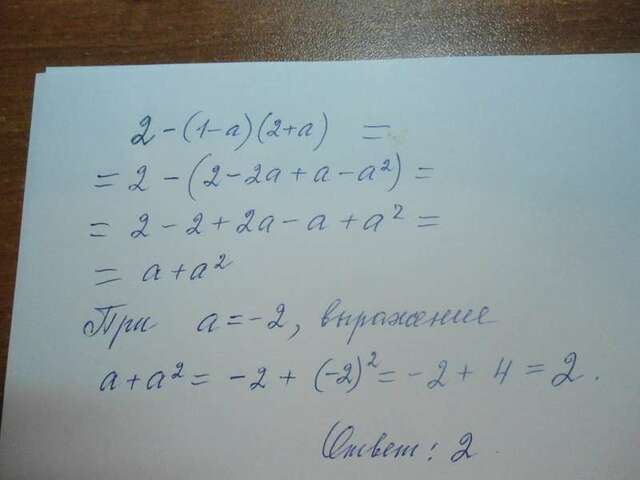 2 - (1-a)(2+a) =
= 2 - (2-2a+a-a²) =
= 2 - 2 + 2a - a + a² =
= a + a²
При a = -2, выражение
a + a² = -2 + (-2)² = -2 + 4 = 2.
Ответ: 2